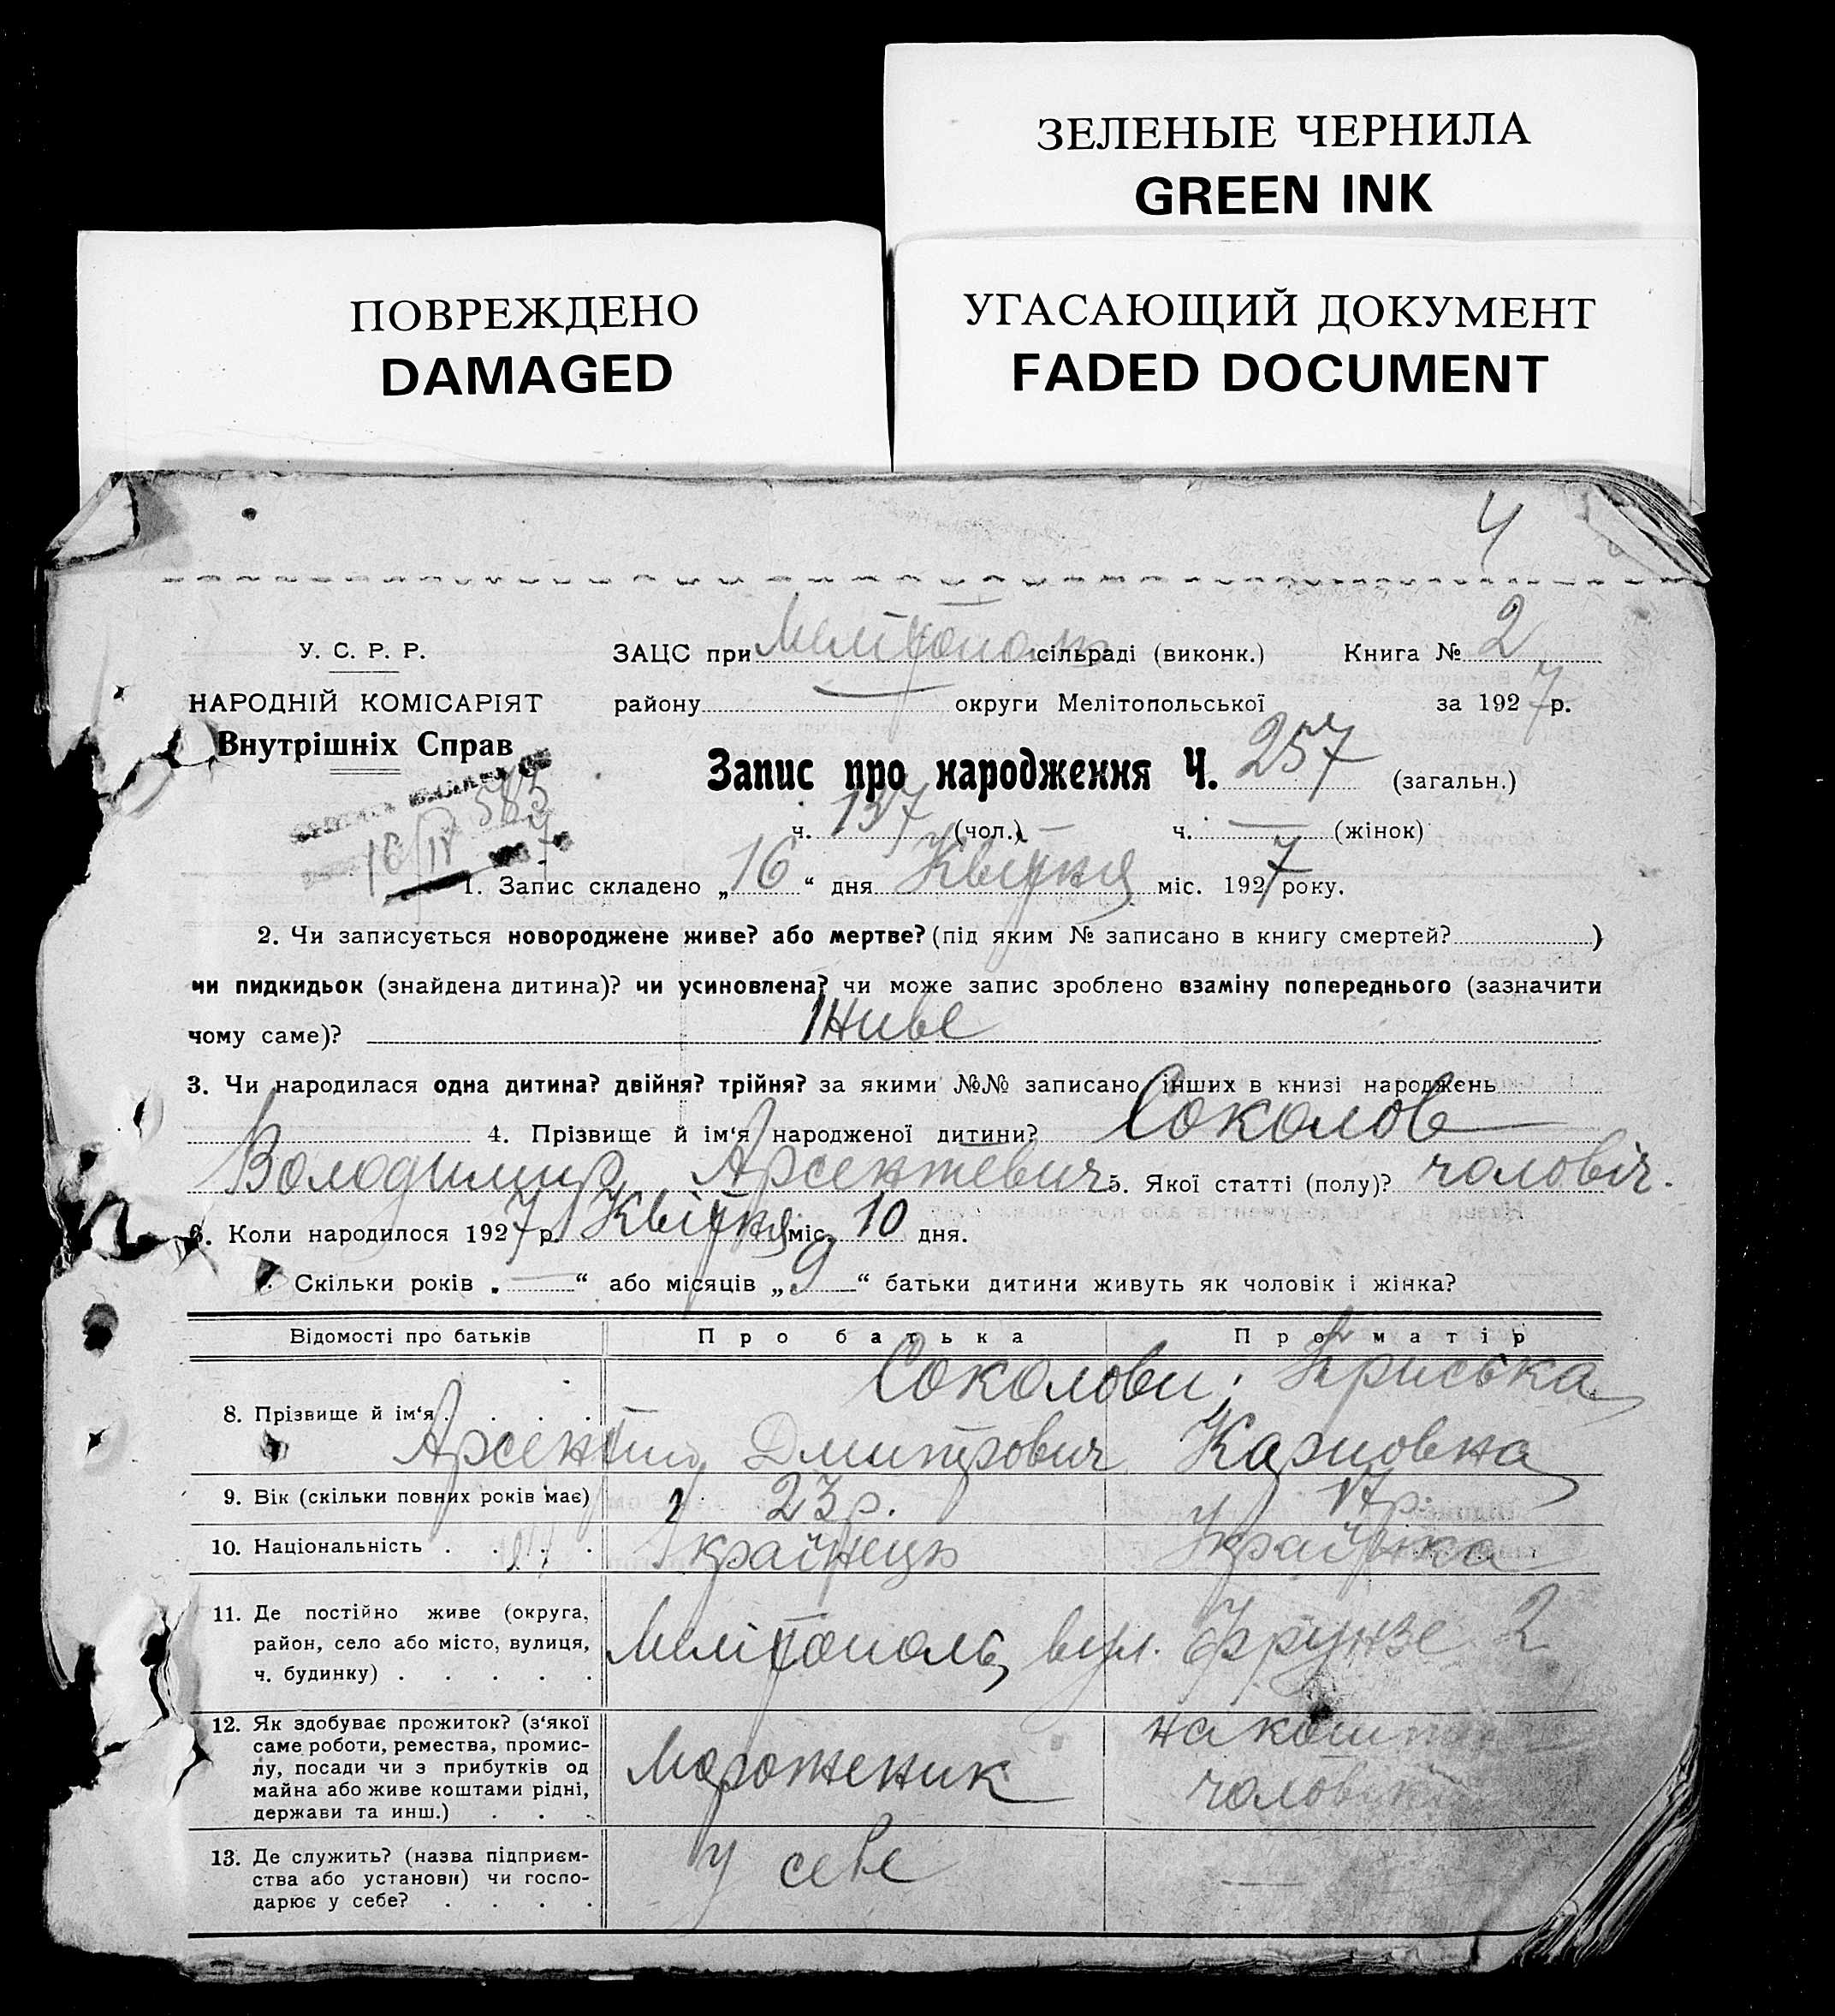 ЗЕЛЕНЫЕ ЧЕРНИЛА
GREEN INK
ПОВРЕЖДЕНО
DAMAGED
УГАСАЮЩИЙ ДОКУМЕНТ
FADED DOCUMENT
4
У. С. Р. Р.
НАРОДНІЙ КОМІСАРІЯТ
Внутрішніх Справ
ЗАЦС при Мелітополь сільраді (виконк.) Книга № 2
району — округи Мелітопольської за 1927 р.
Запис про народження Ч. 257 (загальн.)
ч. 137 (чол.) ч. — (жінок)
583
16/IV 7
1. Запис складено „16“ дня Квітня міс. 1927 року.
2. Чи записується новороджене живе? або мертве? (під яким № записано в книгу смертей? )
чи пидкидьок (знайдена дитина)? чи усиновлена? чи може запис зроблено взаміну попереднього (зазначити
чому саме)? Живе
3. Чи народилася одна дитина? двійня? трійня? за якими №№ записано інших в книзі народжень
4. Прізвище й ім‘я народженої дитини? Соколов
Володимир Арсентевич 5. Якої статті (полу)? чоловіч.
6. Коли народилося 1927 р. Квітня міс. 10 дня.
Скільки років „—“ або місяців „9“ батьки дитини живуть як чоловік і жінка?
Відомості про батьків Про батька Про матір
Соколови; Христька
8. Прізвище й ім‘я
Арсентий Дмитрович Карповна
9. Вік (скільки повних років має) 23 р. 17 р.
10. Національність Українець Українка
11. Де постійно живе (округа,
район, село або місто, вулиця,
ч. будинку)
Мелітополь, вул. Фрунзе 2
12. Як здобуває прожиток? (з‘якої
саме роботи, ремества, промис-
лу, посади чи з прибутків од
майна або живе коштами рідні,
держави та инш.)
Мороженик
на кошти
чоловіка
13. Де служить? (назва підприєм-
ства або установи) чи госпо-
дарює у себе?
у себе